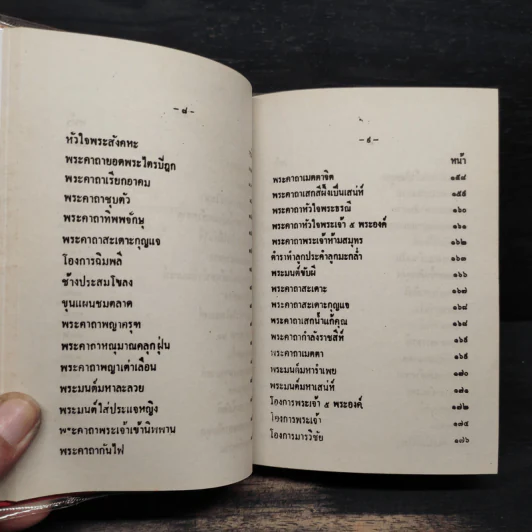 – ๘ –
หัวใจพระสังคหะ
พระคาถายอดพระไตรปีฎก
พระคาถาเรียกอาคม
พระคาถาชุบตัว
พระคาถาทิพพจักษุ
พระคาถาสะเดาะกุญแจ
โองการฉิมพลี
ช้างประสมโขลง
ขุนแผนชมตลาด
พระคาถาพญาครุฑ
พระคาถาหณุมาณคลุกฝุ่น
พระคาถาพญาเต่าเลือน
พระมนต์มหาละลวย
พระมนต์ใส่ประแจหญิง
พระคาถาพระเจ้าเข้านิพพาน
พระคาถากันไฟ
– ๙ –
หน้า
พระคาถาเมตตาจิต ๑๕๘
พระคาถาเสกสีผึ้งเป็นเสน่ห์ ๑๕๙
พระคาถาหัวใจพระธรณี ๑๖๐
พระคาถาหัวใจพระเจ้า ๕ พระองค์ ๑๖๑
พระคาถาพระเจ้าห้ามสมุทร ๑๖๒
ตำราทำลูกประคำลูกมะกล่ำ ๑๖๓
พระมนต์ขับผี ๑๖๖
พระคาถาสะเดาะ ๑๖๗
พระคาถาสะเดาะกุญแจ ๑๖๘
พระคาถาเสกน้ำแก้คุณ ๑๖๘
พระคาถากำลังราชสีห์ ๑๖๙
พระคาถาเมตตา ๑๖๙
พระมนต์มหารำเพย ๑๗๐
พระมนต์มหาเสน่ห์ ๑๗๑
โองการพระเจ้า ๕ พระองค์ ๑๗๒
โองการพระเจ้า ๑๗๕
โองการมารวิชัย ๑๗๖